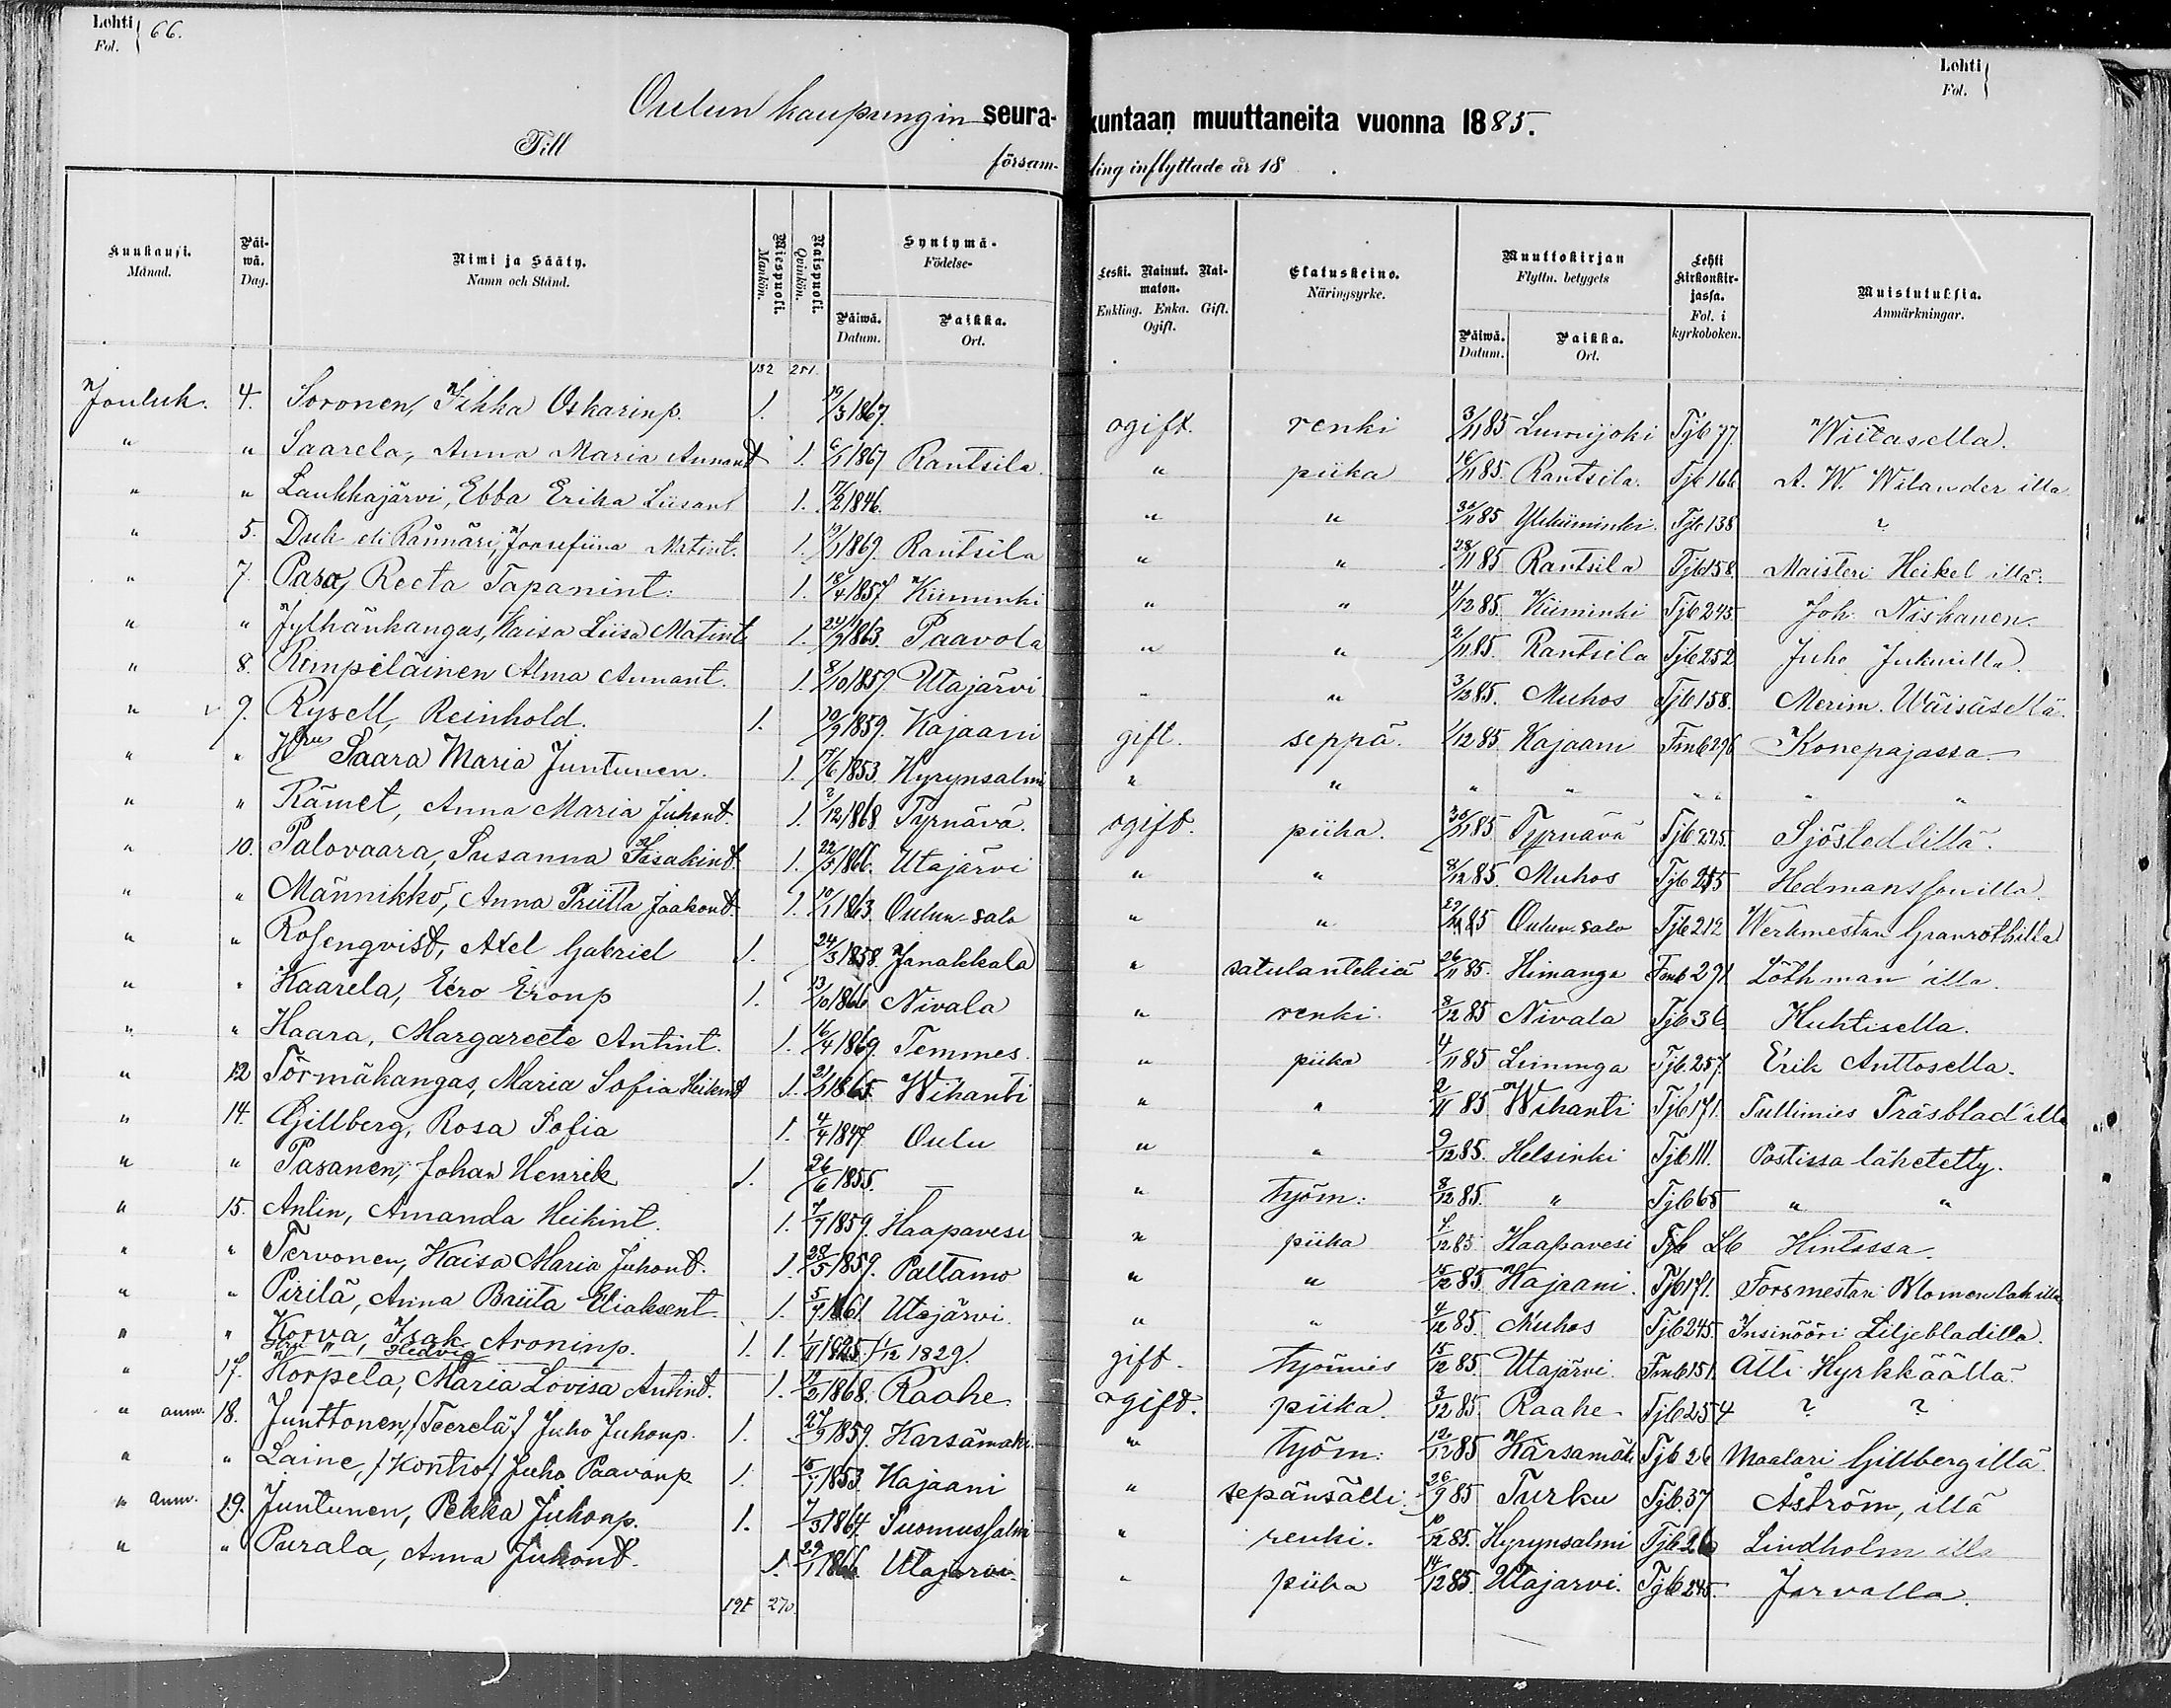 Lohti Fol. 66.
Lohti Fol.
Oulun kaupungin seurakuntaan muuttaneita vuonna 1885.
Till församling inflyttade år 18 .
Kuukausi. Månad. Päiwä. Dag. Nimi ja Sääty. Namn och Stånd. Miespuoli. Mankön. Naispuoli. Qvinkön. Syntymä- Födelse- Päiwä. Datum. Paikka. Ort. Leski. Nainut. Naimaton. Enkling. Enka. Gift. Ogift. Elatuskeino. Näringsyrke. Muuttokirjan Flyttn. betygets Päiwä. Datum. Paikka. Ort. Lehti kirkonkirjassa. Fol. i kyrkoboken. Muistutuksia. Anmärkningar.
132 251.
Jouluk. 4. Soronen, Iikka Oskarinp. 1. 19/3 1867. ogift. renki 3/11 85 Lumijoki Tjb 77. Wiitasella.
" " Saarela, Anna Maria Annant 1. 6/1 1867 Rantsila. " piika 16/11 85. Rantsila. Tjb 166 A. W. Wilander illa
" " Laukkajärvi, Ebba Erika Liisant 1. 17/2 1846. " " 30/11 85 Ylikiiminki. Tjb 138 ?
" 5. Duck eli Rännäri, Josefiina Matint. 1. 19/1 1869. Rantsila " " 28/11 85 Rantsila Tjb 158. Maisteri Heikel illä.
" 7. Pasa, Reeta Tapanint. 1. 18/4 1857 Kiiminki " " 4/12 85. Kiiminki Tjb 245. Joh. Niskanen.
" " Jylhänkangas, Kaisa Liisa Matint 1. 24/9 1863. Paavola " " 2/11 85. Rantsila Tjb 252 Juho Jukuilla.
" 8. Rimpiläinen Alma Annant. 1. 8/10 1859. Utajärvi " " 3/12 85. Muhos Tjb 158. Merim. Wäisäsellä.
" 9. Rysell, Reinhold. 1. 29/9 1859. Kajaani gift. seppä. 1/12 85. Kajaani Fmb 296 Konepajassa
" " Hru Saara Maria Juntunen. 1. 17/6 1853. Hyrynsalmi " " " " " " "
" " Rämet, Anna Maria Juhont. 1. 2/12 1868 Tyrnävä. ogift. piika. 30/11 85 Tyrnävä Tjb 225. Sjöstedtillä.
" 10. Palovaara, Susanna Iisakint. 1. 22/5 1866. Utajärvi " " 8/12 85. Muhos Tjb 255 Hedmanssonilla.
" " Männikkö, Anna Priitta Jaakont. 1. 10/1 1863. Oulun-salo " " 27/11 85 Oulun-salo Tjb 212 Werkmestari Granrothilla
" " Rosenqvist, Axel Gabriel 1. 24/3 1858. Janakkala " satulantekiä 26/11 85. Himanga Fmb 291. Löthman'illa.
" " Kaarela, Eero Eronp 1. 13/10 1866 Nivala " renki. 8/12 85 Nivala Tjb 36. Huhtisella.
" " Haara, Margareeta Antint. 1. 16/4 1869. Temmes. " piika 4/11 85 Liminga Tjb 257. Erik Anttosella.
" 12 Törmäkangas, Maria Sofia Heikint 1. 21/2 1865. Wihanti " " 2/11 85 Wihanti Tjb 171. Tullimies Träsblad'illa
" 14. Gillberg, Rosa Sofia 1. 4/4 1847. Oulu " " 9/12 85. Helsinki Tjb 111. Postissa lähetetty.
" " Pasanen, Johan Henrik 1. 26/6 1855. — " työm: 8/12 85. " Tjb 65 " "
" 15. Anlin, Amanda Heikint. 1. 7/7 1859. Haapavesi " piika 7/12 85 Haapavesi Tjb 26 Hintassa.
" " Tervonen, Kaisa Maria Juhont. 1. 28/5 1859. Paltamo " " 15/12 85. Kajaani. Tjb 171. Forsmestari
" " Pirilä, Anna Briita Eliaksent 1. 5/7 1861. Utajärvi. " " 4/12 85. Muhos Tjb 245. Insinööri Liljebladilla.
" " Korva, Isak Aroninp. 1. 1. 1/11 1825. / 1/12 1829. gift. työmies 15/12 85. Utajärvi. Fmb 151. Atti Hyrkkäällä.
Hru " Hedvig
" 17. Korpela, Maria Lovisa Antint. 1. 12/2 1868. Raahe ogift. piika. 3/12 85. Raahe Tjb 254 ? ?
" annv. 18. Junttonen, /Teerelä/ Juho Juhonp. 1. 27/9 1859. Kärsämäki. " työm: 12/12 85 Kärsamäki Tjb 26 Maalari Gillbergillä.
" " Laine, /Kontio/ Juho Paavonp. 1. 15/1 1853 Kajaani " sepänsälli. 26/9 85 Turku Tjb 37 Åström, illä
" annv. 19. Juntunen, Pekka Juhonp. 1. 7/3 1864. Suomussalmi " renki. 10/12 85. Hyrynsalmi Tjb 26 Lindholm illa
" " Purala, Anna Juhont. 1. 29/1 1866. Utajarvi. " piika 14/12 85. Utajarvi. Tjb 245. Jarvalla.
191 270.